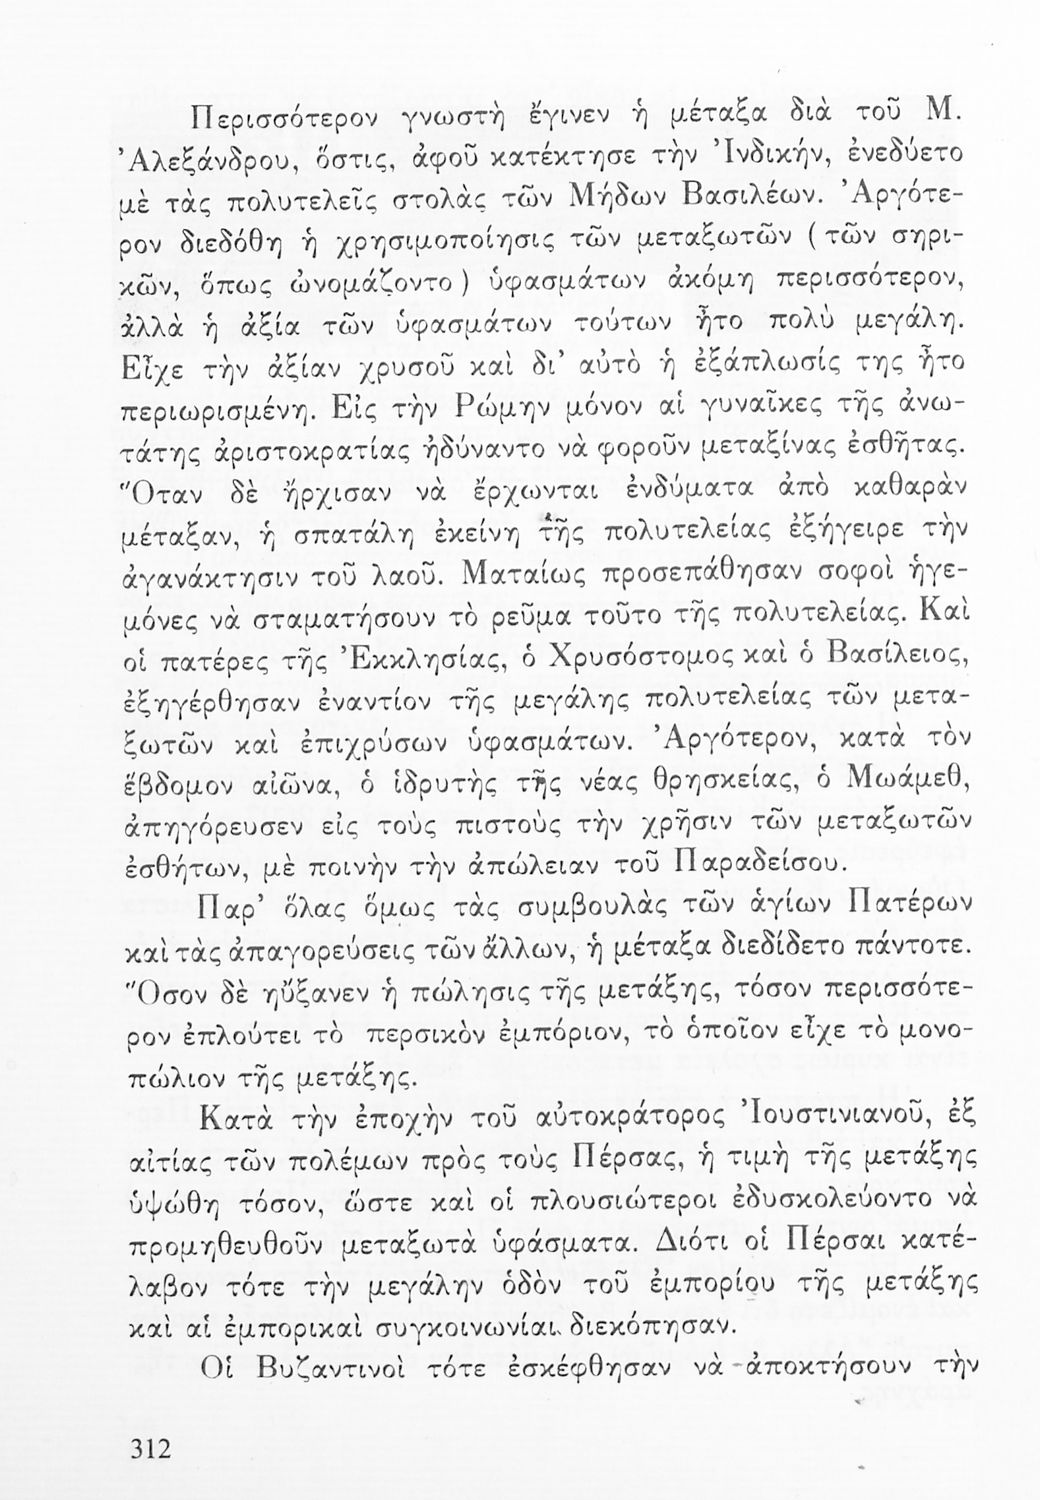 Περισσότερον γνωστὴ ἔγινεν ἡ μέταξα διὰ τοῦ Μ.
Ἀλεξάνδρου, ὅστις, ἀφοῦ κατέκτησε τὴν Ἰνδικήν, ἐνεδύετο
μὲ τὰς πολυτελεῖς στολὰς τῶν Μήδων Βασιλέων. Ἀργότε-
ρον διεδόθη ἡ χρησιμοποίησις τῶν μεταξωτῶν (τῶν σηρι-
κῶν, ὅπως ὠνομάζοντο) ὑφασμάτων ἀκόμη περισσότερον,
ἀλλὰ ἡ ἀξία τῶν ὑφασμάτων τούτων ἦτο πολὺ μεγάλη.
Εἶχε τὴν ἀξίαν χρυσοῦ καὶ δι' αὐτὸ ἡ ἐξάπλωσίς της ἦτο
περιωρισμένη. Εἰς τὴν Ρώμην μόνον αἱ γυναῖκες τῆς ἀνω-
τάτης ἀριστοκρατίας ἠδύναντο νὰ φοροῦν μεταξίνας ἐσθῆτας.
Ὅταν δὲ ἤρχισαν νὰ ἔρχωνται ἐνδύματα ἀπὸ καθαρὰν
μέταξαν, ἡ σπατάλη ἐκείνη τῆς πολυτελείας ἐξήγειρε τὴν
ἀγανάκτησιν τοῦ λαοῦ. Ματαίως προσεπάθησαν σοφοὶ ἡγε-
μόνες νὰ σταματήσουν τὸ ρεῦμα τοῦτο τῆς πολυτελείας. Καὶ
οἱ πατέρες τῆς Ἐκκλησίας, ὁ Χρυσόστομος καὶ ὁ Βασίλειος,
ἐξηγέρθησαν ἐναντίον τῆς μεγάλης πολυτελείας τῶν μετα-
ξωτῶν καὶ ἐπιχρύσων ὑφασμάτων. Ἀργότερον, κατὰ τὸν
ἕβδομον αἰῶνα, ὁ ἱδρυτὴς τῆς νέας θρησκείας, ὁ Μωάμεθ,
ἀπηγόρευσεν εἰς τοὺς πιστοὺς τὴν χρῆσιν τῶν μεταξωτῶν
ἐσθήτων, μὲ ποινὴν τὴν ἀπώλειαν τοῦ Παραδείσου.
Παρ' ὅλας ὅμως τὰς συμβουλὰς τῶν ἁγίων Πατέρων
καὶ τὰς ἀπαγορεύσεις τῶν ἄλλων, ἡ μέταξα διεδίδετο πάντοτε.
Ὅσον δὲ ηὔξανεν ἡ πώλησις τῆς μετάξης, τόσον περισσότε-
ρον ἐπλούτει τὸ περσικὸν ἐμπόριον, τὸ ὁποῖον εἶχε τὸ μονο-
πώλιον τῆς μετάξης.
Κατὰ τὴν ἐποχὴν τοῦ αὐτοκράτορος Ἰουστινιανοῦ, ἐξ
αἰτίας τῶν πολέμων πρὸς τοὺς Πέρσας, ἡ τιμὴ τῆς μετάξης
ὑψώθη τόσον, ὥστε καὶ οἱ πλουσιώτεροι ἐδυσκολεύοντο νὰ
προμηθευθοῦν μεταξωτὰ ὑφάσματα. Διότι οἱ Πέρσαι κατέ-
λαβον τότε τὴν μεγάλην ὁδὸν τοῦ ἐμπορίου τῆς μετάξης
καὶ αἱ ἐμπορικαὶ συγκοινωνίαι διεκόπησαν.
Οἱ Βυζαντινοὶ τότε ἐσκέφθησαν νὰ ἀποκτήσουν τὴν
312